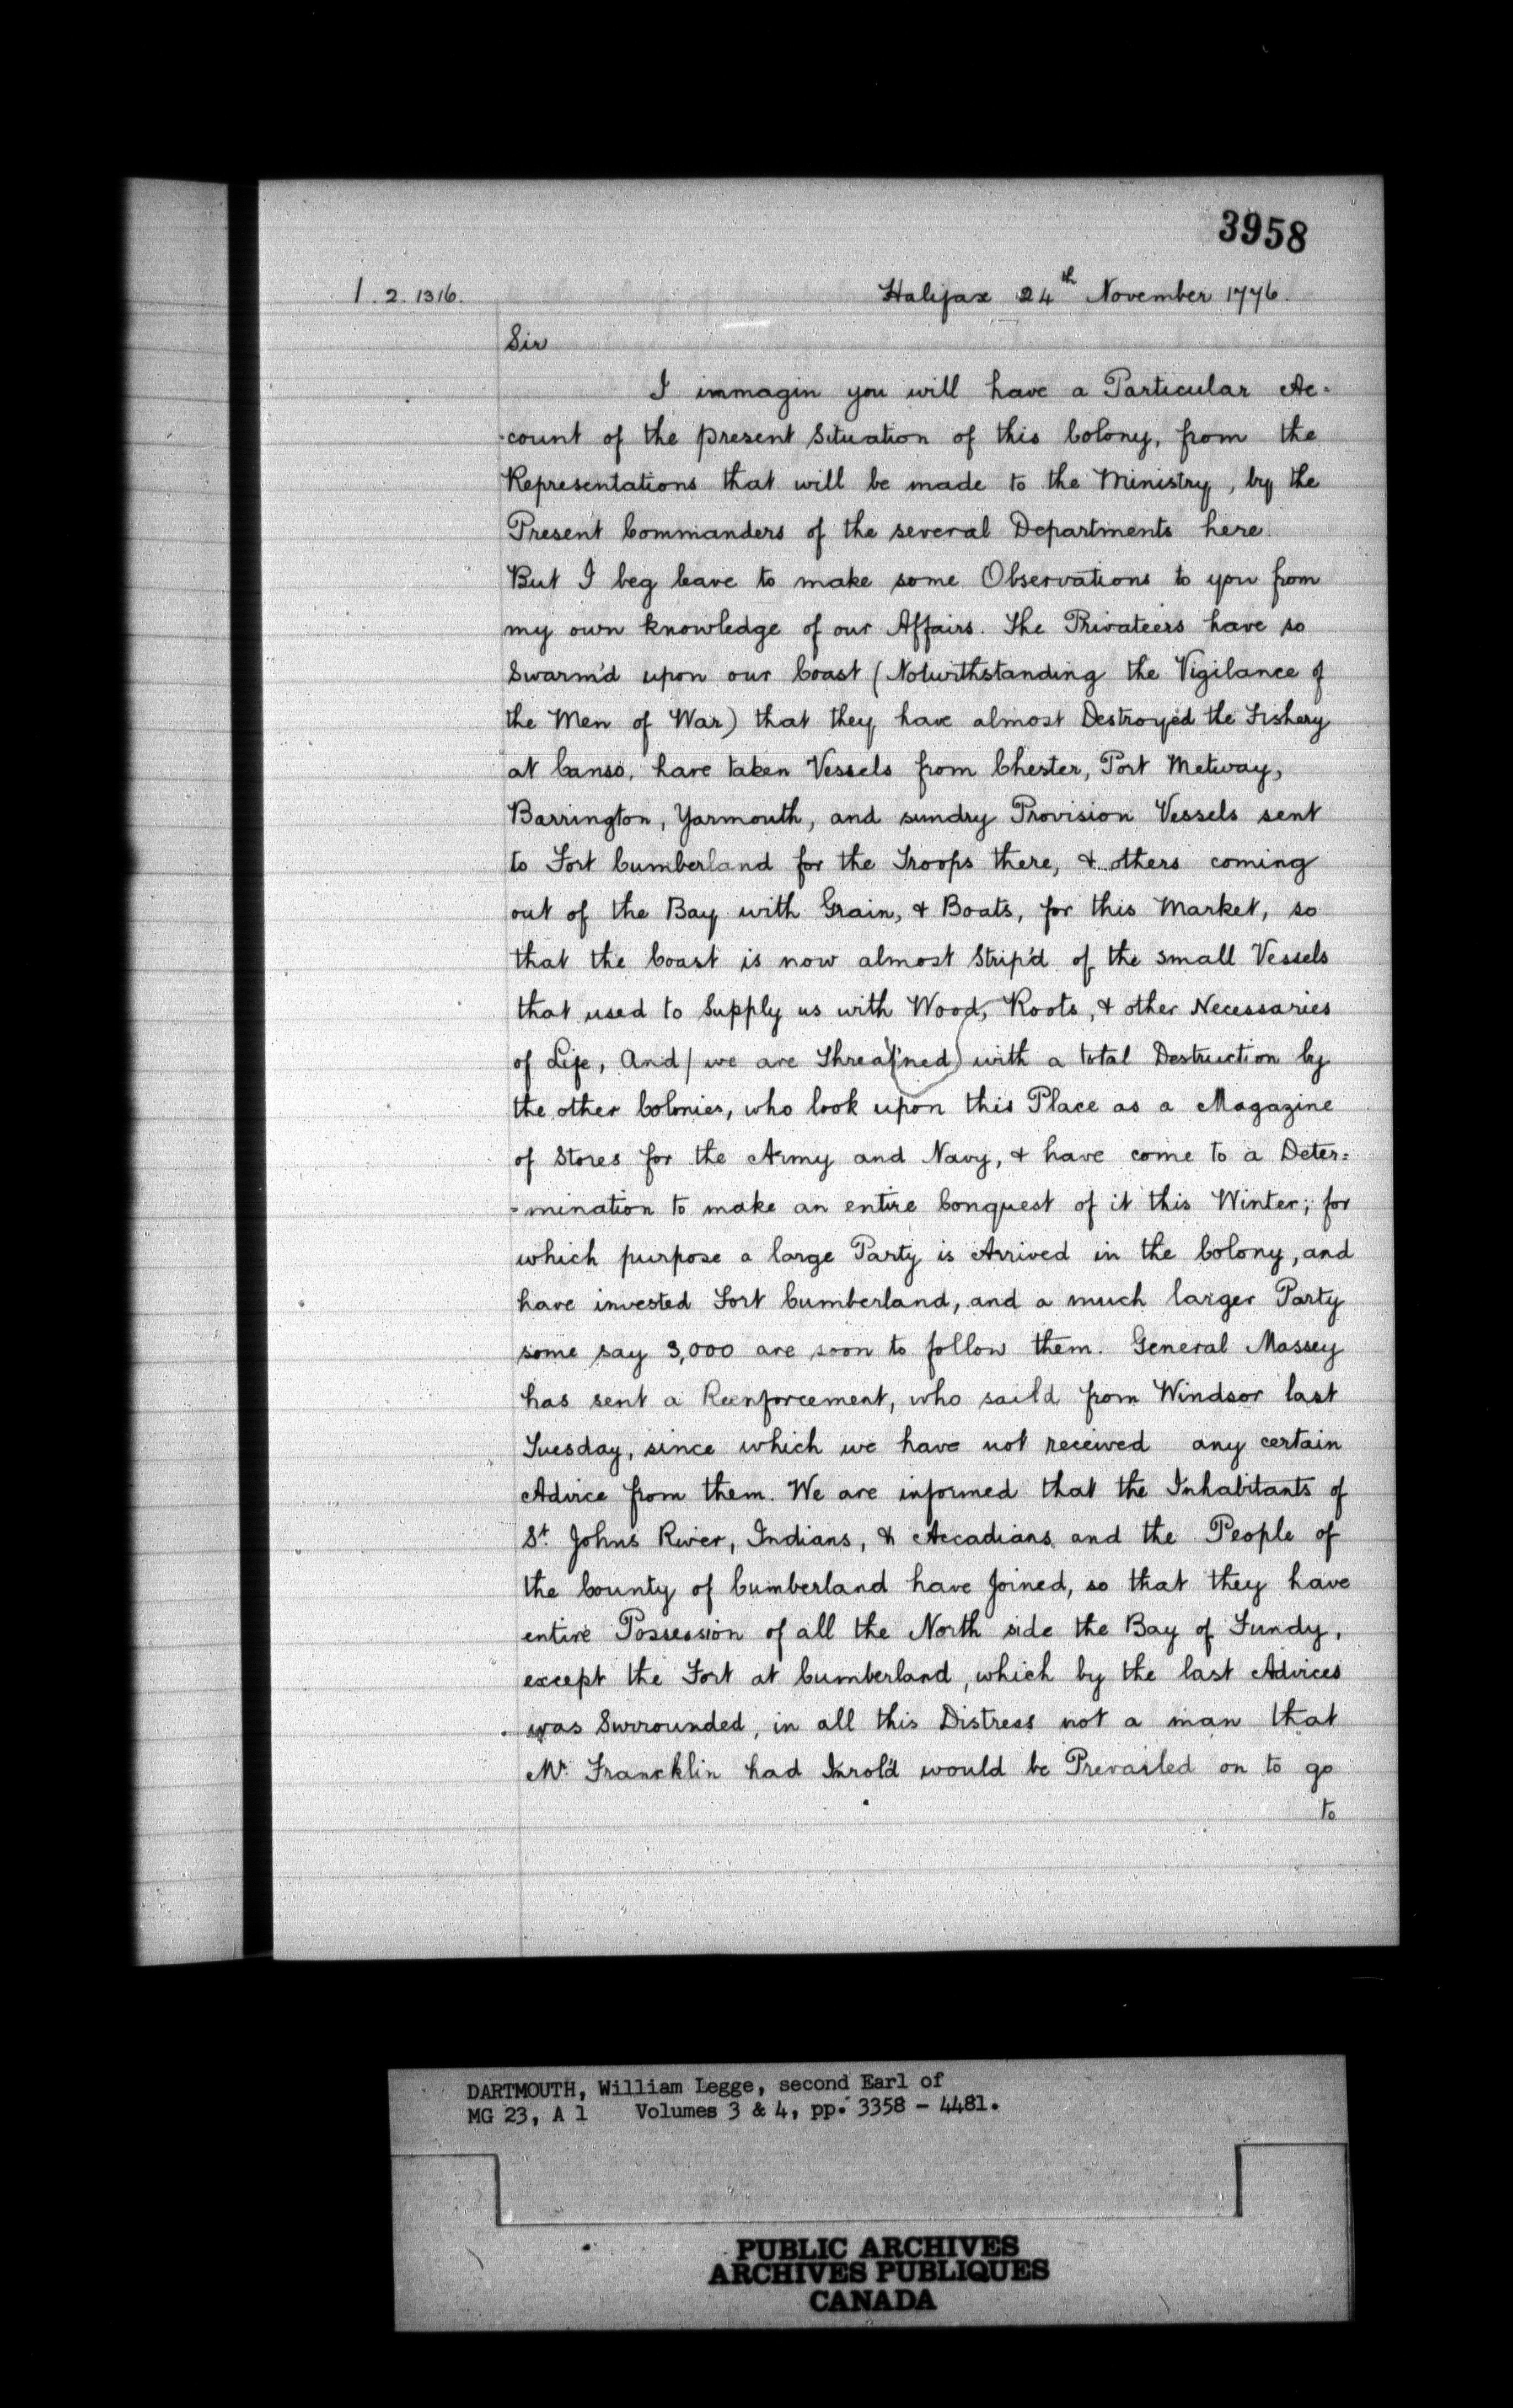 3958
1. 2. 1316.
Halifax 24th November 1776.
Sir
I immagin you will have a Particular Ac=
-count of the present Situation of this Colony, from the
Representations that will be made to the Ministry, by the
Present Commanders of the several Departments here.
But I beg leave to make some Observations to you from
my own knowledge of our Affairs. The Privateers have so
Swarm'd upon our Coast (Notwithstanding the Vigilance of
the Men of War) that they have almost Destroyed the Fishery
at Canso, have taken Vessels from Chester, Port Metway,
Barrington, Yarmouth, and sundry Provision Vessels sent
to Fort Cumberland for the Troops there, & others coming
out of the Bay with Grain, & Boats, for this Market, so
that the Coast is now almost Strip'd of the small Vessels
that used to Supply us with Wood, Roots, & other Necessaries
of Life, And/ we are Threat'ned) with a total Destruction by
the other Colonies, who look upon this Place as a Magazine
of Stores for the Army and Navy, & have come to a Deter=
=mination to make an entire Conquest of it this Winter; for
which purpose a large Party is Arrived in the Colony, and
have invested Fort Cumberland, and a much larger Party
some say 3,000 are soon to follow them. General Massey
has sent a Reenforcement, who saild from Windsor last
Tuesday, since which we have not received any certain
Advice from them. We are informed that the Inhabitants of
St. Johns River, Indians, & Accadians and the People of
the County of Cumberland have Joined, so that they have
entire Possession of all the North side the Bay of Fundy,
except the Fort at Cumberland, which by the last Advices
was Surrounded, in all this Distress not a man that
Mr. Francklin had Inrol'd would be Prevailed on to go
to
DARTMOUTH, William Legge, second Earl of
MG 23, A 1 Volumes 3 & 4, pp. 3358 - 4481.
PUBLIC ARCHIVES
ARCHIVES PUBLIQUES
CANADA